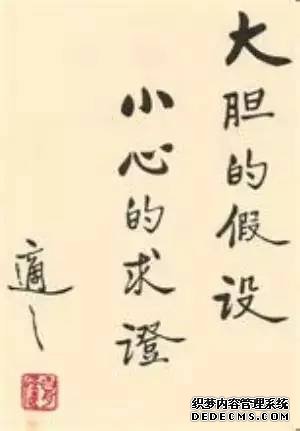 大胆的假设
小心的求證
適之
织梦内容管理系统
DEDECMS.COM